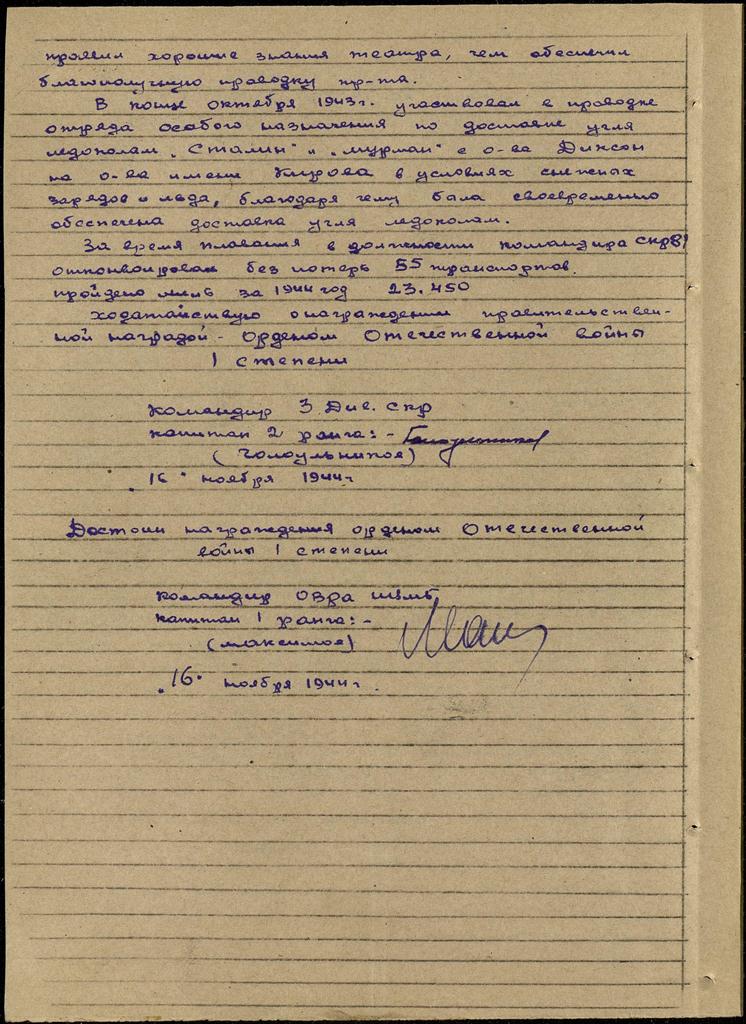 проявил хорошие знания театра, чем обеспечил
благополучную проводку тр-та.
В конце октября 1943г. участвовал в проводке
отряда особого назначения по доставке угля
ледоколам „Сталин" и „Мурман" с о-ва Диксон
на о-ва имени Кирова в условиях снежных
зарядов и льда, благодаря чему была своевременно
обеспечена доставка угля ледоколам.
За время плавания в должности командира СКР
отконвоировал без потерь 55 транспортов.
пройдено миль за 1944 год 23.450
ходатайствую о награждении правительствен-
ной наградой - Орденом Отечественной войны
1 степени
Командир 3 Див. СКР
капитан 2 ранга: -
(Голоульников)
„16" ноября 1944г
Достоин награждения орденом Отечественной
войны 1 степени
Командир ОВРа
капитан 1 ранга: -
(Максимов)
„16" ноября 1944г.